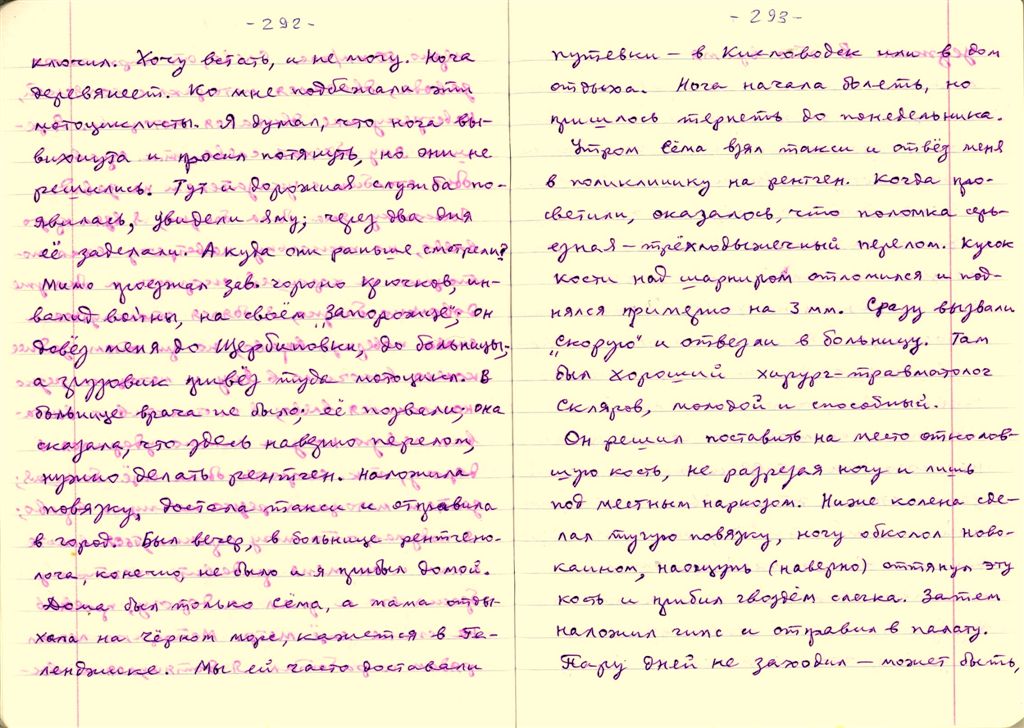 - 292 -
ключил. Хочу встать, и не могу. Нога
деревянеет. Ко мне подбежали эти
мотоциклисты. Я думал, что нога вы-
вихнута и просил потянуть, но они не
решились. Тут и дорожная служба по-
явилась, увидели яму; через два дня
её заделали. А куда они раньше смотрели?
Мимо проезжал зав. гороно Крючков, ин-
валид войны, на своём „Запорожце"; он
довёз меня до Щербиновки, до больницы;
а грузовик привёз туда мотоцикл. В
больнице врача не было; её позвали; она
сказала, что здесь наверно перелом,
нужно делать рентген. Наложила
повязку, достала такси и отправила
в город. Был вечер, в больнице рентгено-
лога, конечно, не было и я прибыл домой.
Дома был только Сёма, а мама отды-
хала на Чёрном море, кажется в Ге-
ленджике. Мы ей часто доставали
- 293 -
путевки — в Кисловодск или в дом
отдыха. Нога начала болеть, но
пришлось терпеть до понедельника.
Утром Сёма взял такси и отвёз меня
в поликлинику на рентген. Когда про-
светили, оказалось, что поломка серь-
езная — трёхлодыжечный перелом. Кусок
кости над шарниром отломился и под-
нялся примерно на 3 мм. Сразу вызвали
„Скорую" и отвезли в больницу. Там
был хороший хирург-травматолог
Скляров, молодой и способный.
Он решил поставить на место отколов-
шую кость, не разрезая ногу и лишь
под местным наркозом. Ниже колена сде-
лал тугую повязку, ногу обколол ново-
каином, наощупь (наверно) оттянул эту
кость и прибил гвоздём слегка. Затем
наложил гипс и отправил в палату.
Пару дней не заходил — может быть,